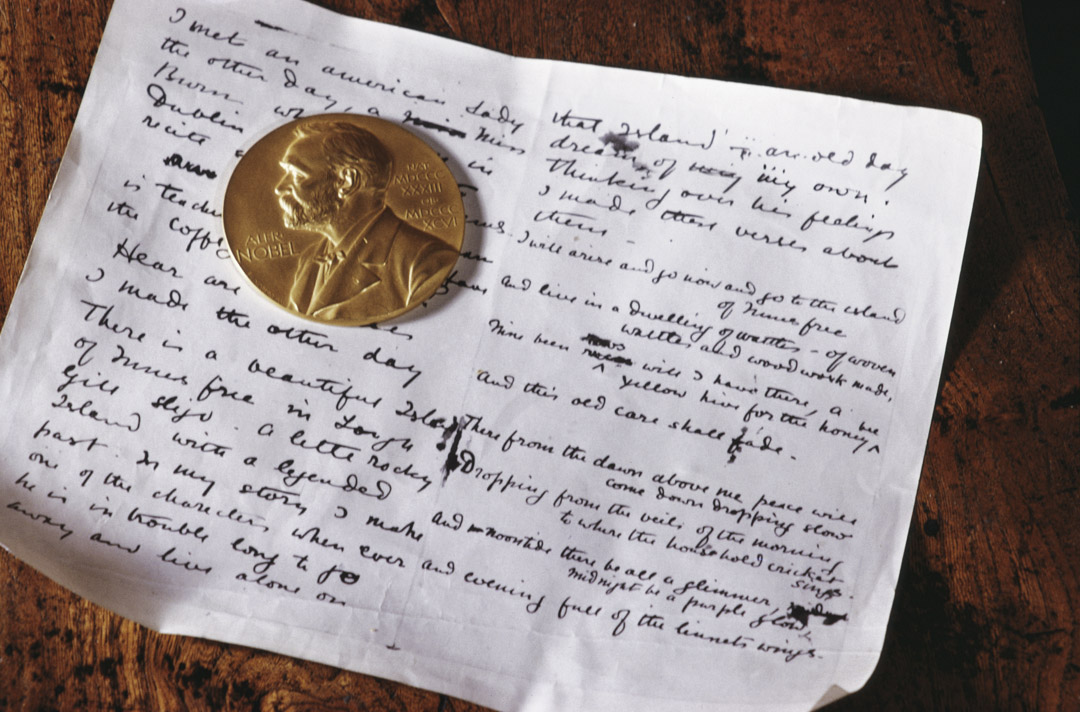 I met an american Lady
the other day, a Miss
Burn
Dublin in
recite
is teach
the Coff
Hear are
I made the other day
There is a beautiful Island
of Innis free in Lough
Gill sligo. A little rocky
Island with a legended
past. In my story I make
one of the characters when ever
he is in trouble long to go
away and live alone on
ALFR.
NOBEL
NAT.
MDCCC
XXXIII
OB.
MDCCC
XCVI
that Island an old day
dream of my own.
Thinking over his feelings
I made these verses about
them -
I will arise and go now and go to the island
of Innis free
and live in a dwelling of wattles - of woven
wattles and wood work made,
Nine bean rows will I have there, a
yellow hive for the honey bee
And this old care shall fade.
There from the dawn above me peace will
come down dropping slow
Dropping from the veils of the morning
to where the household cricket
sings.
And noontide there be all a glimmer,
midnight be a purple glow,
and evening full of the linnets wings.